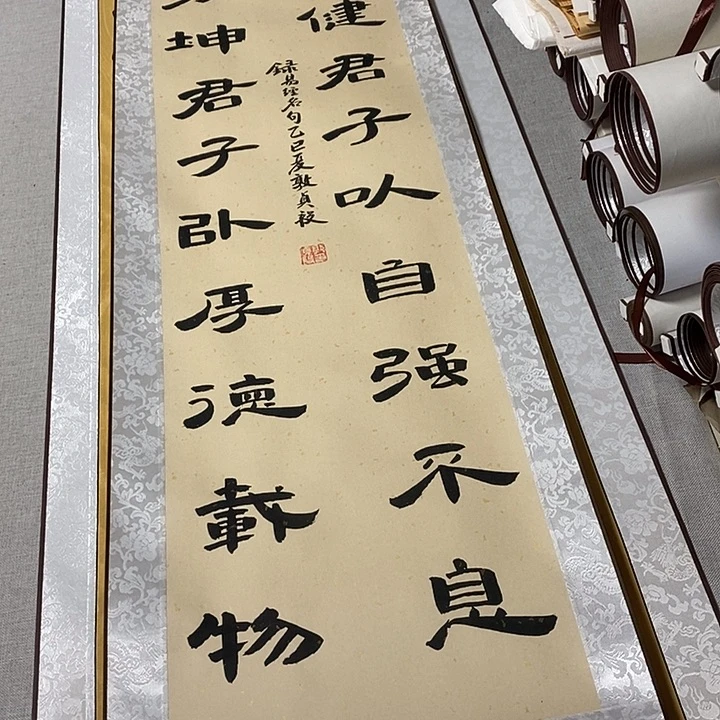 健君子以自强不息
坤君子以厚德載物
録易經名句乙巳夏